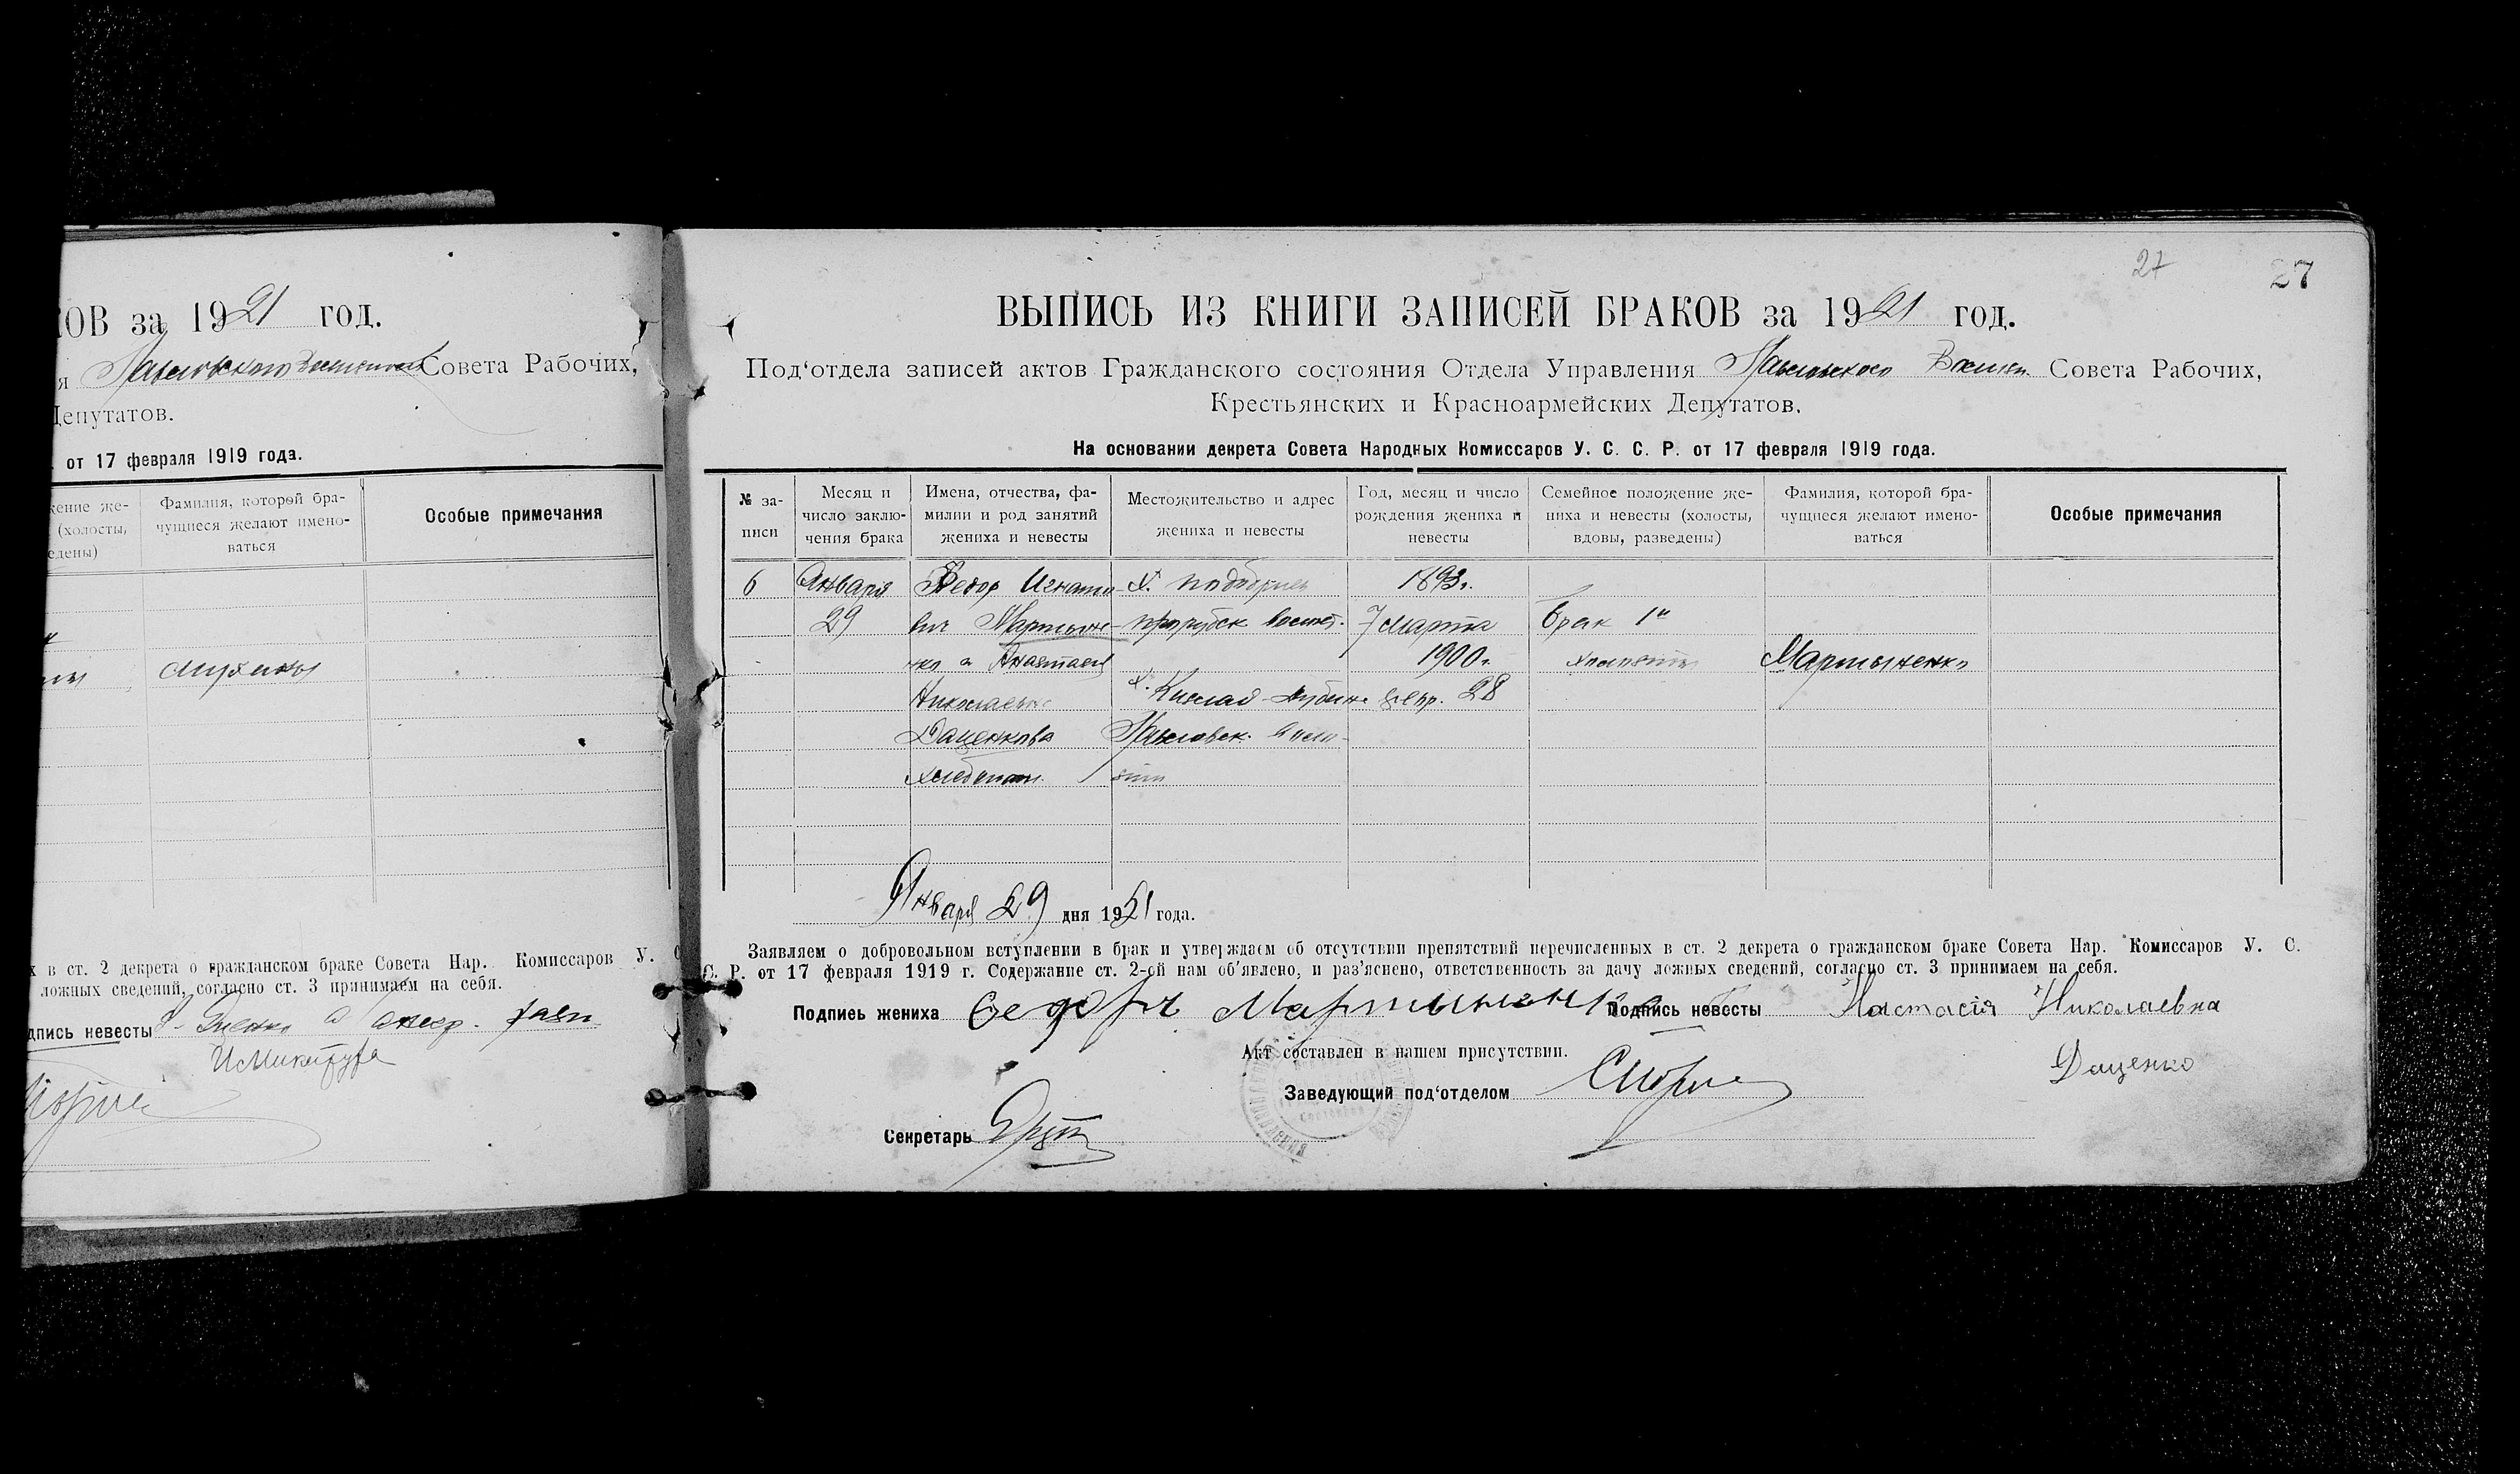 КОВ за 1921 год.
я Павловского Совета Рабочих,
Депутатов.
от 17 февраля 1919 года.
жение же-
(холосты,
едены)
Фамилия, которой бра-
чущиеся желают имено-
ваться
Особые примечания
х в ст. 2 декрета о гражданском браке Совета Нар. Комиссаров У. С
ложных сведений, согласно ст. 3 принимаем на себя.
дпись невесты
27
27
ВЫПИСЬ ИЗ КНИГИ ЗАПИСЕЙ БРАКОВ за 1921 год.
Под'отдела записей актов Гражданского состояния Отдела Управления Павловского Совета Рабочих,
Крестьянских и Красноармейских Депутатов.
На основании декрета Совета Народных Комиссаров У. С. С. Р. от 17 февраля 1919 года.
№ за-
писи
Месяц и
число заклю-
чения брака
Имена, отчества, фа-
милии и род занятий
жениха и невесты
Местожительство и адрес
жениха и невесты
Год, месяц и число
рождения жениха и
невесты
Семейное положение же-
ниха и невесты (холосты,
вдовы, разведены)
Фамилия, которой бра-
чущиеся желают имено-
ваться
Особые примечания
6 Января Федор Игнато- х. 1893г.
29 вич Мартыне- 7 марта брак 1й
нко и Анастасия 1900г. Мартыненко
Николаевна х. февр. 28
Даценкова Павловск.
хлебопаш.
Января 29 дня 1921 года.
Заявляем о добровольном вступлении в брак и утверждаем об отсутствии препятствий перечисленных в ст. 2 декрета о гражданском браке Совета Нар. Комиссаров У. С.
С. Р. от 17 февраля 1919 г. Содержание ст. 2-ой нам об'явлено, и раз'яснено, ответственность за дачу ложных сведений, согласно ст. 3 принимаем на себя.
Подпись жениха Федоръ Мартыненко Подпись невесты Настасія Николаевна
Даценко
Акт составлен в нашем присутствии.
Заведующий под'отделом
Секретарь